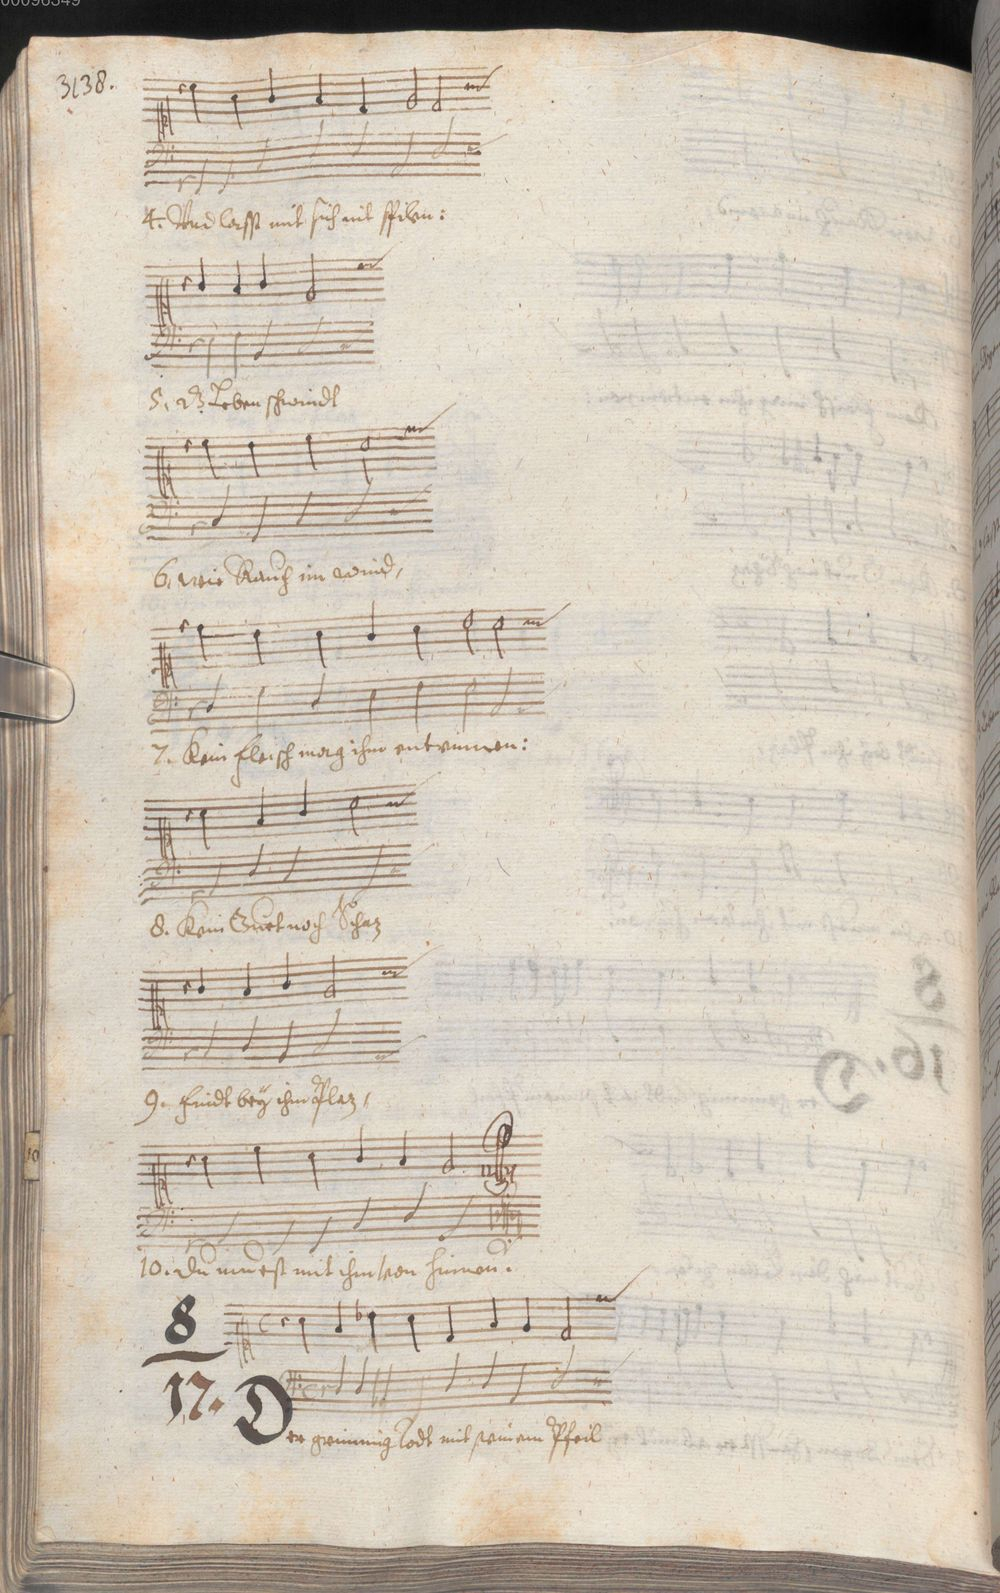 00096349
3138.
4. Und lasst nit sich mit spilen:
5. dz Leben schwindt
6. wie Rauch im wind,
7. Kein fleisch mag ihm entrinnen:
8. Kein Guet noch Schaz
9. findt bey ihm Plaz,
10. Du muest mit ihm von hinnen.
8
17. Der grimmig Todt mit seinem Pfeil
10